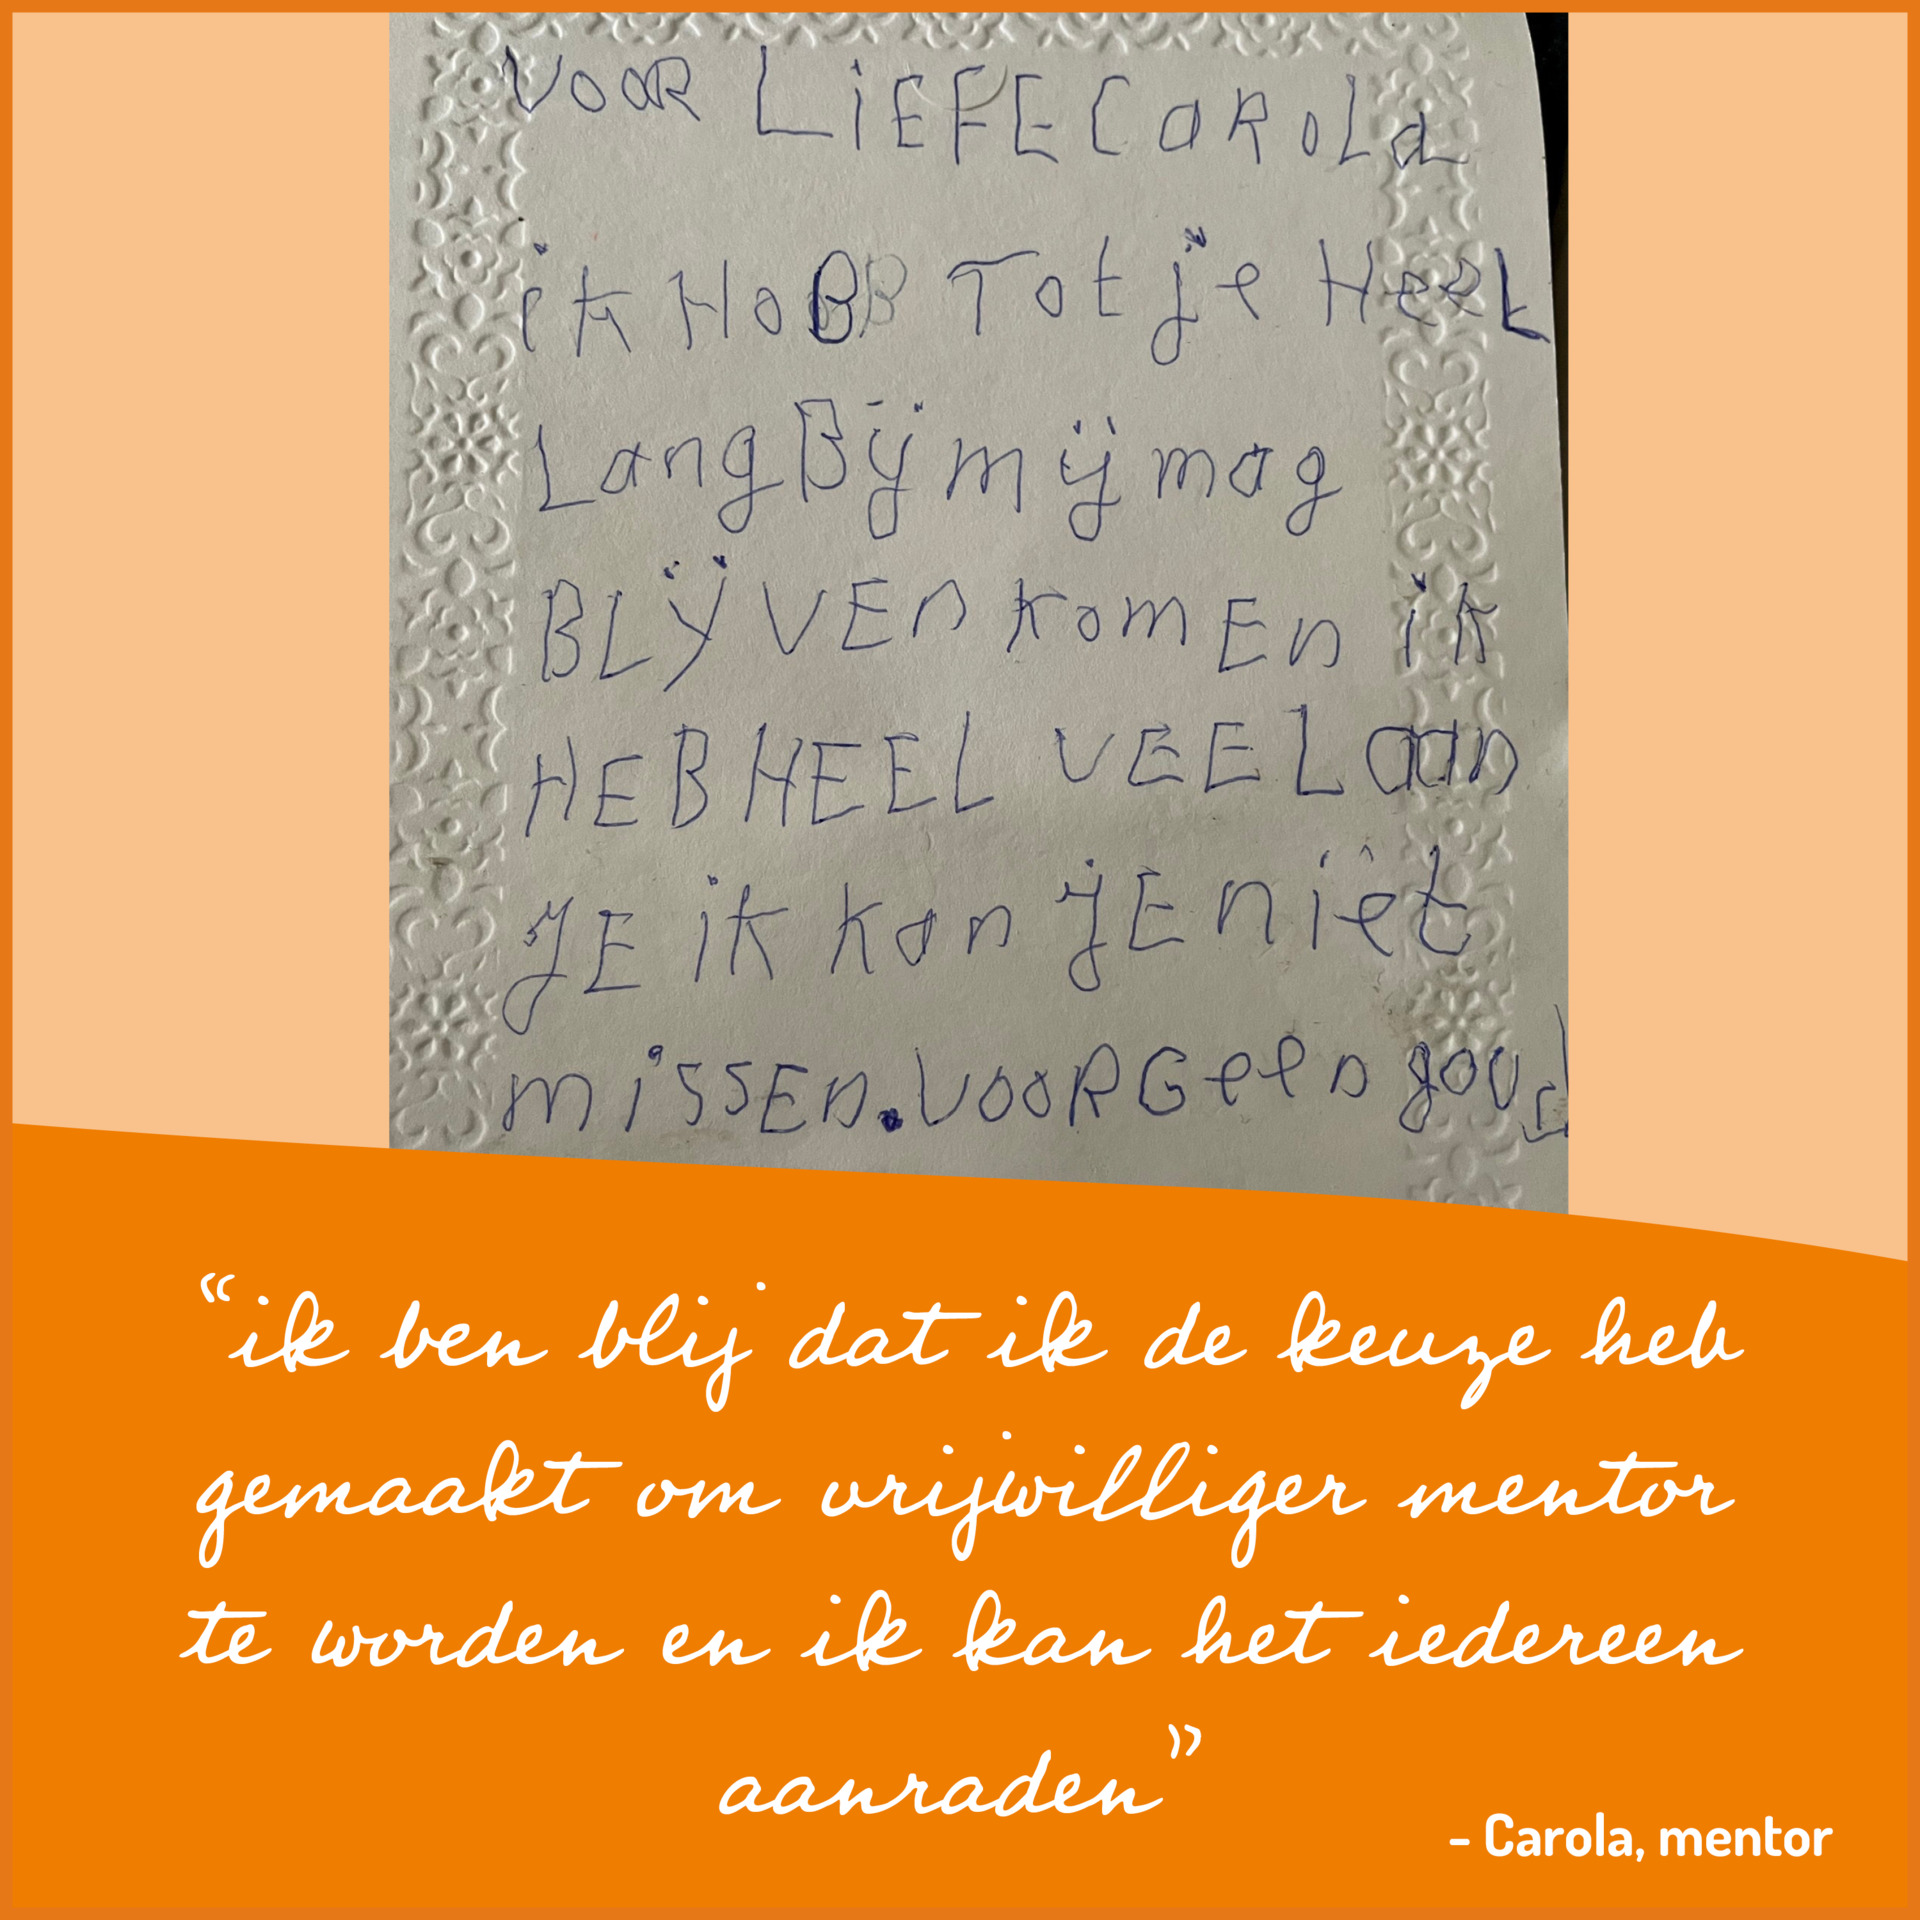 VOOR LiEFE CaROLa
ik HoBB Tot je HEEL
Lang Bij mij mag
BLijVEn komEn ik
HEB HEEL VEEL aan
JE ik kan jE niet
missEn. VooR Geen goud
“ik ben blij dat ik de keuze heb
gemaakt om vrijwilliger mentor
te worden en ik kan het iedereen
aanraden”
- Carola, mentor